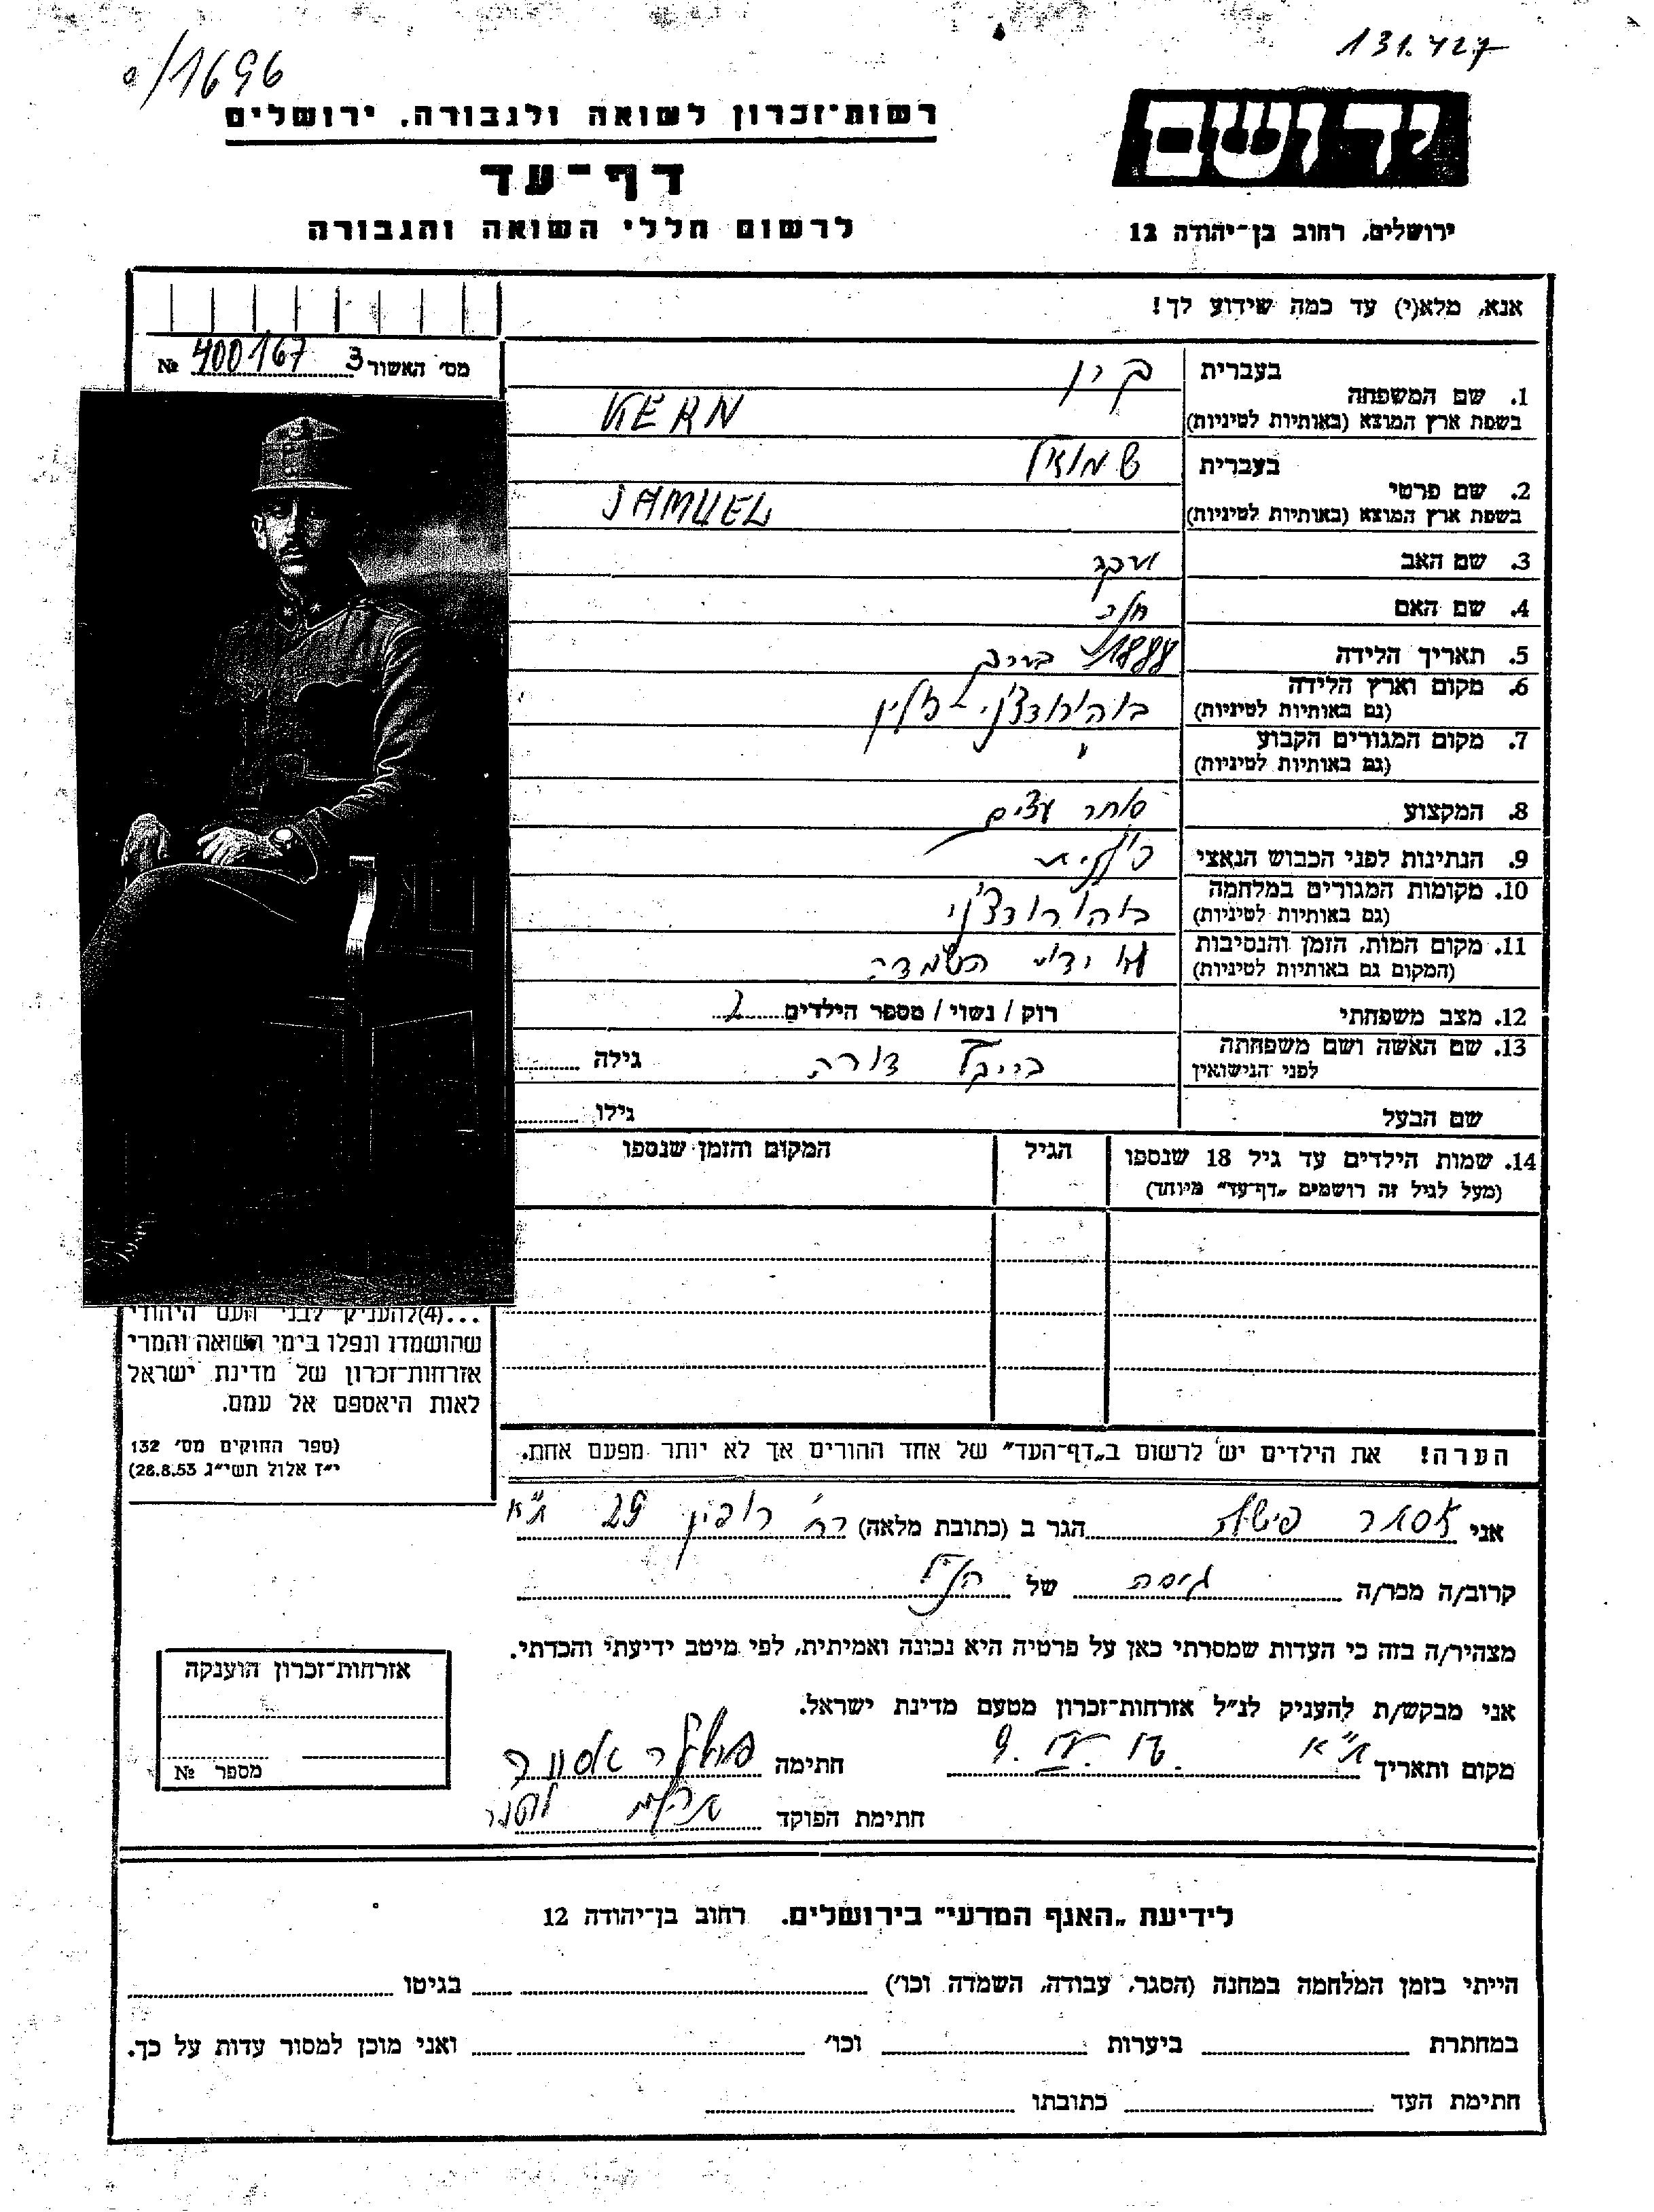 131.427
0/1696
רשות־זכרון לשואה ולגבורה. ירושלים
דף־עד
לרשום חללי השואה והגבורה
יד ושם
ירושלים. רחוב בן־יהודה 12
אנא, מלא(י) עד כמה שידוע לך!
מס׳ האשור 3 400167 №
1. שם המשפחה
בעברית קרן
בשפת ארץ המוצא (באותיות לטיניות) KERN
2. שם פרטי
בעברית שמואל
בשפת ארץ המוצא (באותיות לטיניות) SAMUEL
3. שם האב יעקב
4. שם האם חנה
5. תאריך הלידה 1888
6. מקום וארץ הלידה
(גם באותיות לטיניות) בוהורודצ'ני - פולין
7. מקום המגורים הקבוע "
(גם באותיות לטיניות)
8. המקצוע סוחר עצים
9. הנתינות לפני הכבוש הנאצי פולנית
10. מקומות המגורים במלחמה
(גם באותיות לטיניות) בוהורודצ'ני
11. מקום המות, הזמן והנסיבות
(המקום גם באותיות לטיניות) לא ידוע השמדה
12. מצב משפחתי רוק / נשוי / מספר הילדים 2
13. שם האשה ושם משפחתה
לפני הנישואין דורה גילה
שם הבעל גילו
14. שמות הילדים עד גיל 18 שנספו הגיל המקום והזמן שנספו
(מעל לגיל זה רושמים „דף־עד" מיוחד)
...(4)להעניק לבני העם היהודי
שהושמדו ונפלו בימי השואה והמרי
אזרחות־זכרון של מדינת ישראל
לאות היאספם אל עמם.
(ספר החוקים מס׳ 132
י״ז אלול תשי״ג 28.8.53)
הערה! את הילדים יש לרשום ב„דף־העד" של אחד ההורים אך לא יותר מפעם אחת.
אני אסתר הגר ב (כתובת מלאה) רח' רופין 29 ת"א
קרוב/ה מכר/ה גיסה של הנ"ל
מצהיר/ה בזה כי העדות שמסרתי כאן על פרטיה היא נכונה ואמיתית, לפי מיטב ידיעתי והכרתי.
אני מבקש/ת להעניק לנ״ל אזרחות־זכרון מטעם מדינת ישראל.
מקום ותאריך ת"א חתימה אסתר
חתימת הפוקד
אזרחות־זכרון הוענקה
מספר №
לידיעת „האגף המדעי" בירושלים. רחוב בן־יהודה 12
הייתי בזמן המלחמה במחנה (הסגר, עבודה, השמדה וכו׳) בגיטו
במחתרת ביערות וכו׳ ואני מוכן למסור עדות על כך.
חתימת העד כתובתו